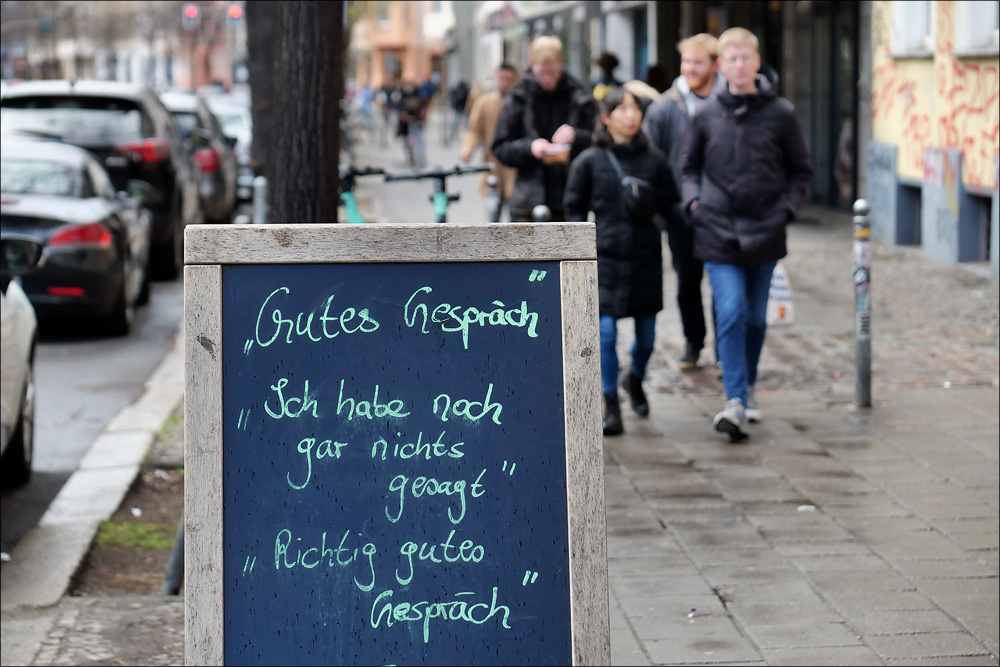 „Gutes Gespräch"
„Ich habe noch
gar nichts
gesagt"
„Richtig gutes
Gespräch"